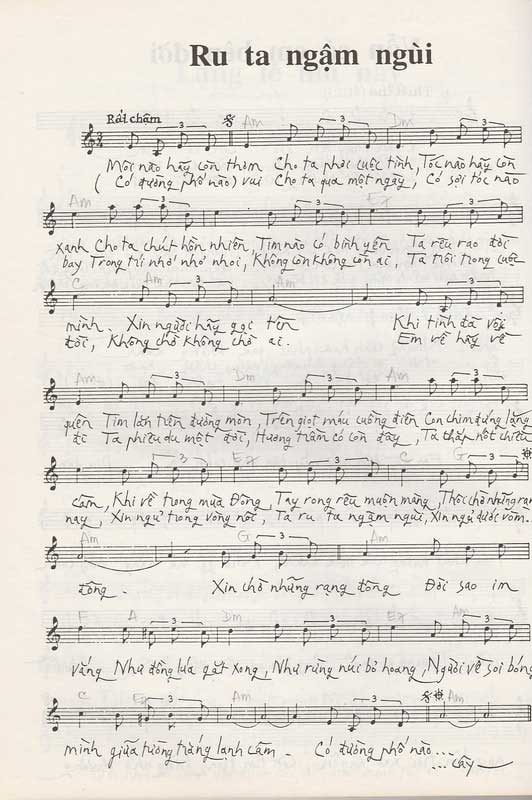 Ru ta ngậm ngùi
Rất chậm
Am Dm
Môi nào hãy còn thơm Cho ta phơi cuộc tình, Tóc nào hãy còn
( Có đường phố nào) vui Cho ta qua một ngày, Có sợi tóc nào
Am E7
xanh Cho ta chút hồn nhiên, Tim nào có bình yên Ta rêu rao đời
bay Trong trí nhớ nhỏ nhoi, Không còn không còn ai, Ta trôi trong cuộc
C Am Am
mình. Xin người hãy gọi tên Khi tình đã vội
đời, Không chờ không chờ ai. Em về hãy về
Am Dm Am
quên Tim lăn trên đường mòn, Trên giọt máu cuồng điên Con chim đứng lặng
đi Ta phiêu du một đời, Hương trầm có còn đây, Ta thắp nốt chiều
E7 C G
câm, Khi về trong mùa Đông, Tay rong rêu muộn màng, Thôi chờ những rạng
nay, Xin ngủ trong vòng nôi, Ta ru ta ngậm ngùi, Xin ngủ dưới vòm
Am G Am
đông. Xin chờ những rạng đông Đời sao im
F A Dm E7 Am
vắng Như đồng lúa gặt xong, Như rừng núi bỏ hoang, Người về soi bóng
C E7 Am Am
mình giữa tường trắng lặng câm. Có đường phố nào...
... cây